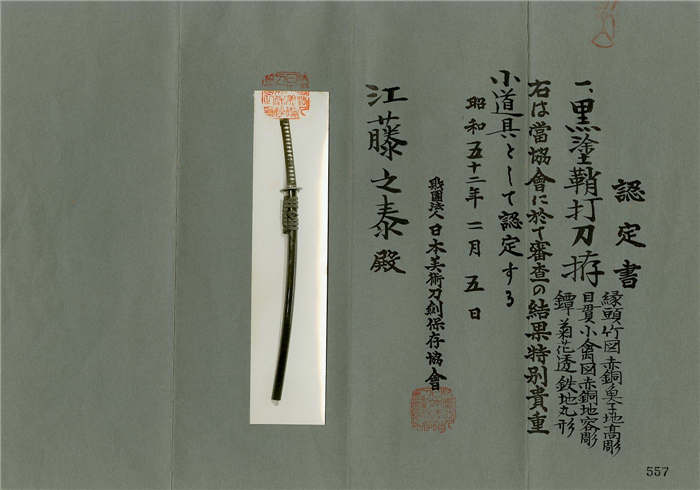 認定書
一、黒塗鞘打刀拵
縁頭竹図赤銅魚子地高彫
目貫小禽図赤銅地容彫
鐔菊花透鉄地丸形
右は當協會に於て審査の結果特別貴重
小道具として認定する
昭和五十二年二月五日
財團法人日本美術刀剣保存協會
江藤之泰殿
557